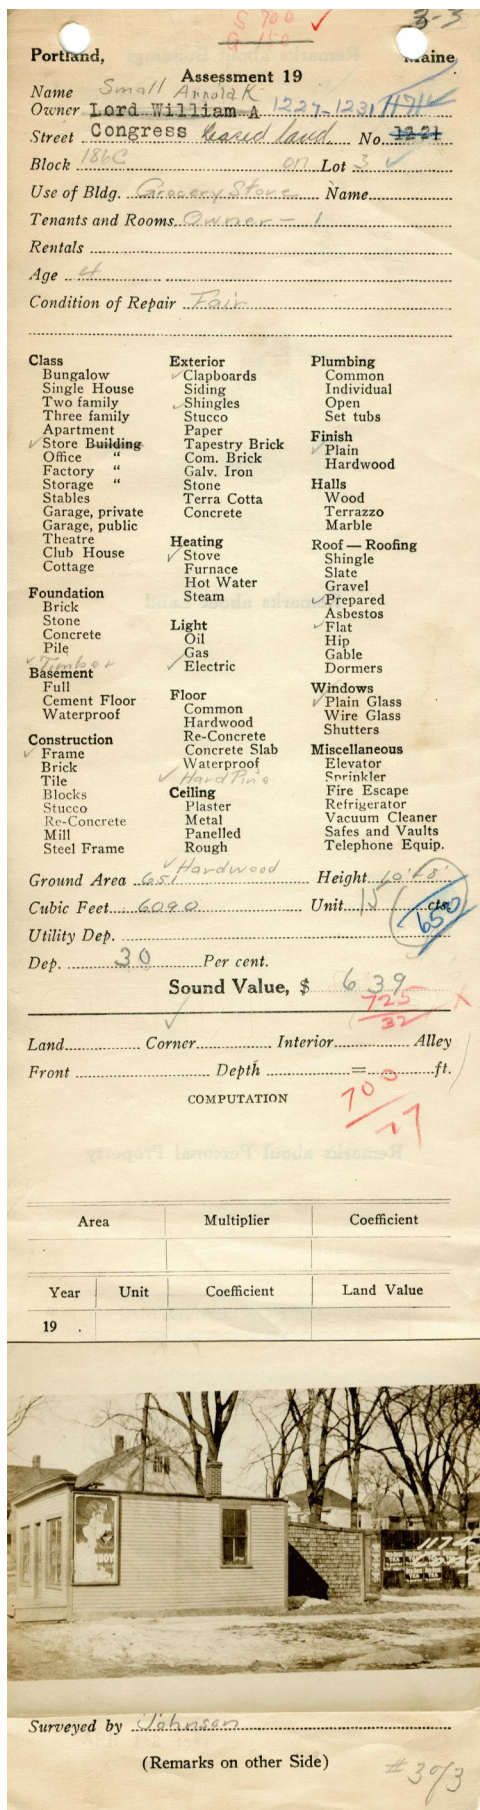 S 700 ✓
G 150
3-3
Portland, Maine
Assessment 19
Name Small Arnold K
Owner Lord William A 1227-1231 1171
Street Congress leased land No. 1221
Block 186C on Lot 3 ✓
Use of Bldg. Grocery Store Name
Tenants and Rooms Owner - 1
Rentals
Age 4
Condition of Repair Fair
Class
Bungalow
Single House
Two family
Three family
Apartment
✓ Store Building
Office "
Factory "
Storage "
Stables
Garage, private
Garage, public
Theatre
Club House
Cottage
Foundation
Brick
Stone
Concrete
Pile
✓ Timber
Basement
Full
Cement Floor
Waterproof
Construction
✓ Frame
Brick
Tile
Blocks
Stucco
Re-Concrete
Mill
Steel Frame
Exterior
✓ Clapboards
Siding
✓ Shingles
Stucco
Paper
Tapestry Brick
Com. Brick
Galv. Iron
Stone
Terra Cotta
Concrete
Heating
✓ Stove
Furnace
Hot Water
Steam
Light
Oil
Gas
✓ Electric
Floor
Common
Hardwood
Re-Concrete
Concrete Slab
Waterproof
✓ Hard Pine
Ceiling
Plaster
Metal
Panelled
Rough
✓ Hardwood
Plumbing
Common
Individual
Open
Set tubs
Finish
✓ Plain
Hardwood
Halls
Wood
Terrazzo
Marble
Roof — Roofing
Shingle
Slate
Gravel
✓ Prepared
Asbestos
✓ Flat
Hip
Gable
Dormers
Windows
✓ Plain Glass
Wire Glass
Shutters
Miscellaneous
Elevator
Sprinkler
Fire Escape
Refrigerator
Vacuum Cleaner
Safes and Vaults
Telephone Equip.
Ground Area 651 Height 10' & 8'
Cubic Feet 6090 Unit 15 cts.
650
Utility Dep.
Dep. 30 Per cent.
Sound Value, $ 639
725 X
32
Land Corner ✓ Interior Alley
Front Depth = ft.
COMPUTATION
700
77
Area Multiplier Coefficient
Year Unit Coefficient Land Value
19 .
1174
Cong
Surveyed by Johnson
(Remarks on other Side)
# 3 of 3